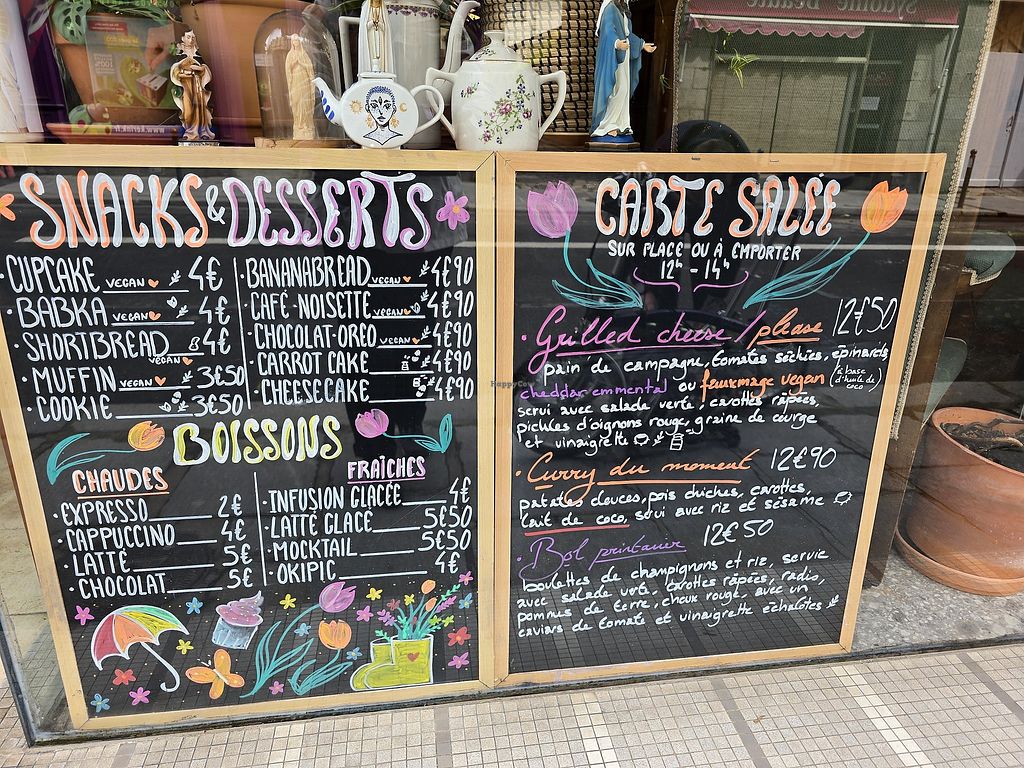 SNACKS & DESSERTS
CUPCAKE VEGAN 4€
BABKA VEGAN 4€
SHORTBREAD VEGAN 4€
MUFFIN VEGAN 3€50
COOKIE 3€50
BANANABREAD VEGAN 4€90
CAFÉ-NOISETTE VEGAN 4€90
CHOCOLAT-OREO VEGAN 4€90
CARROT CAKE 4€90
CHEESECAKE 4€90
BOISSONS
CHAUDES
EXPRESSO 2€
CAPPUCCINO 4€
LATTE 5€
CHOCOLAT 5€
FRAÎCHES
INFUSION GLACÉE 4€
LATTÉ GLACÉ 5€50
MOCKTAIL 5€50
OKIPIC 4€
CARTE SALÉE
SUR PLACE OU À EMPORTER
12h - 14h
Grilled cheese / please 12€50
pain de campagne, tomates séchées, épinards,
cheddar emmental ou fauxmage vegan (à base d'huile de coco)
servi avec salade verte, carottes râpées,
pickles d'oignons rouge, graine de courge
et vinaigrette
Curry du moment 12€90
patates douces, pois chiches, carottes,
lait de coco, servi avec riz et sésame
Bol printanier 12€50
boulettes de champignons et riz, servie
avec salade verte, carottes râpées, radis,
pommes de terre, choux rouge, avec un
caviars de tomate et vinaigrette échalotes
HappyCow